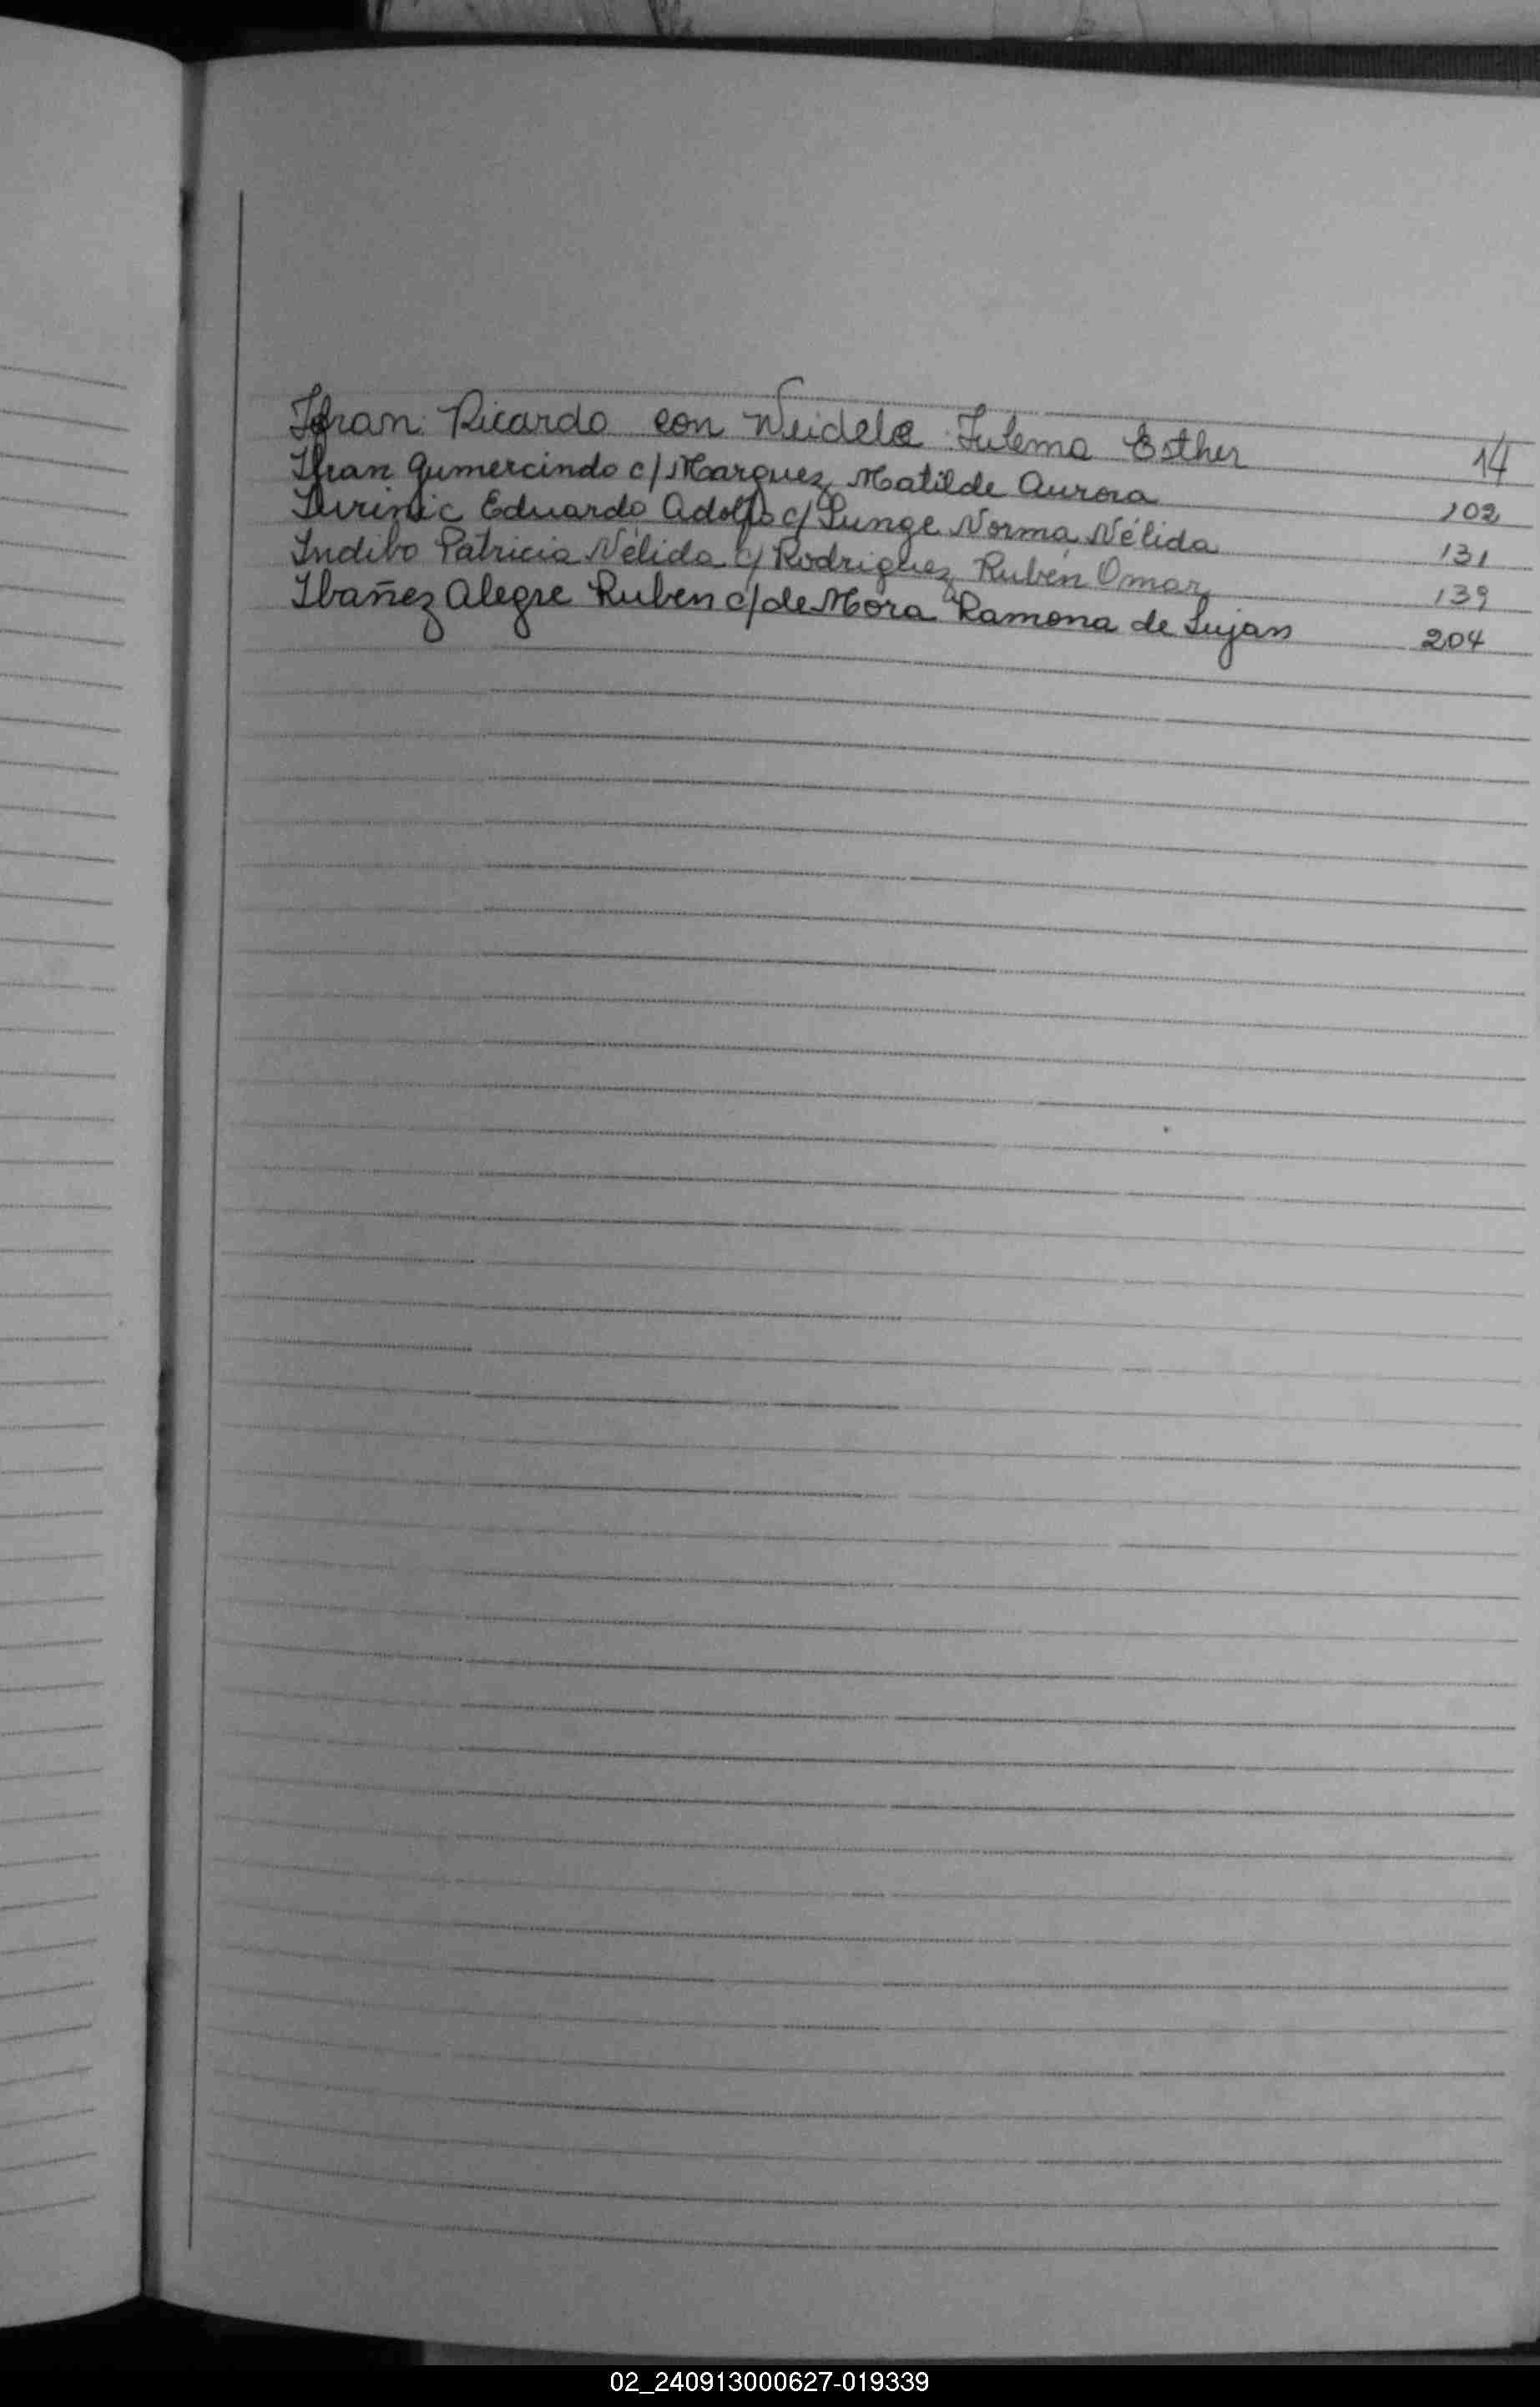 Ifran Ricardo con Weidele Zulema Esther 14
Ifran Gumercindo c/ Marquez Matilde Aurora 102
Eduardo Adolfo c/ Norma Nélida 131
Indibo Patricia Nélida c/ Rodriguez Rubén Omar 139
Ibañez Alegre Ruben c/ de Mora Ramona de Lujan 204
02_240913000627-019339